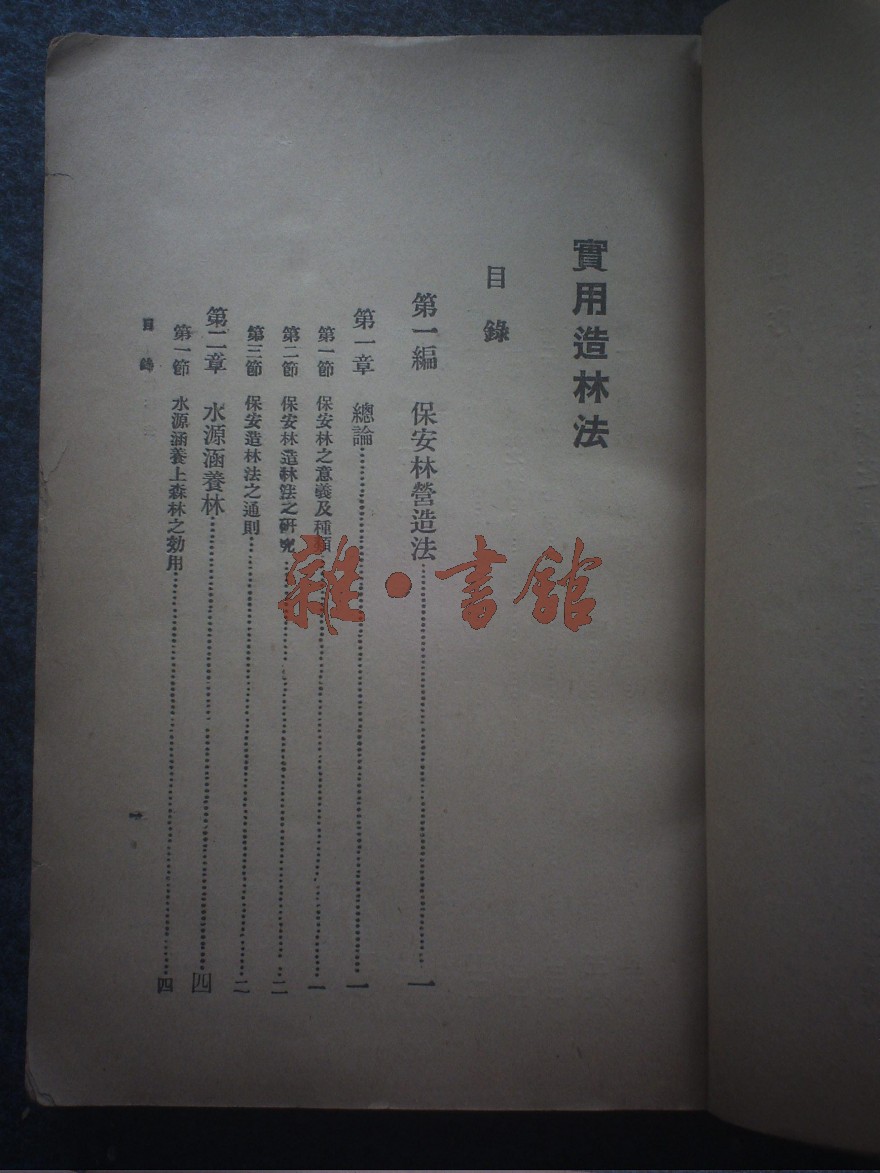 實用造林法
目錄
第一編 保安林營造法……一
第一章 總論……一
第一節 保安林之意義及種類……一
第二節 保安林造林法之研究……二
第三節 保安造林法之通則……二
第二章 水源涵養林……四
第一節 水源涵養上森林之効用……四
目錄
雜·書館